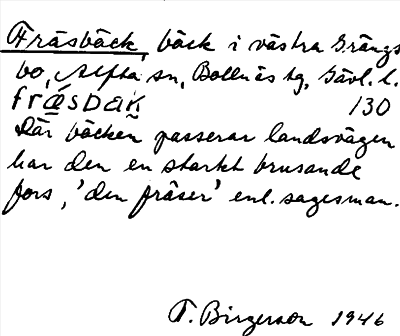 Fräsbäck, bäck i västra Grängs
bo, Alfta sn, Bollnäs tg, Gävl. l.
fræ̀sbäk 130
Där bäcken passerar landsvägen
har den en starkt brusande
fors, 'den fräser' enl. sagesman.
F. Birgerson 1946